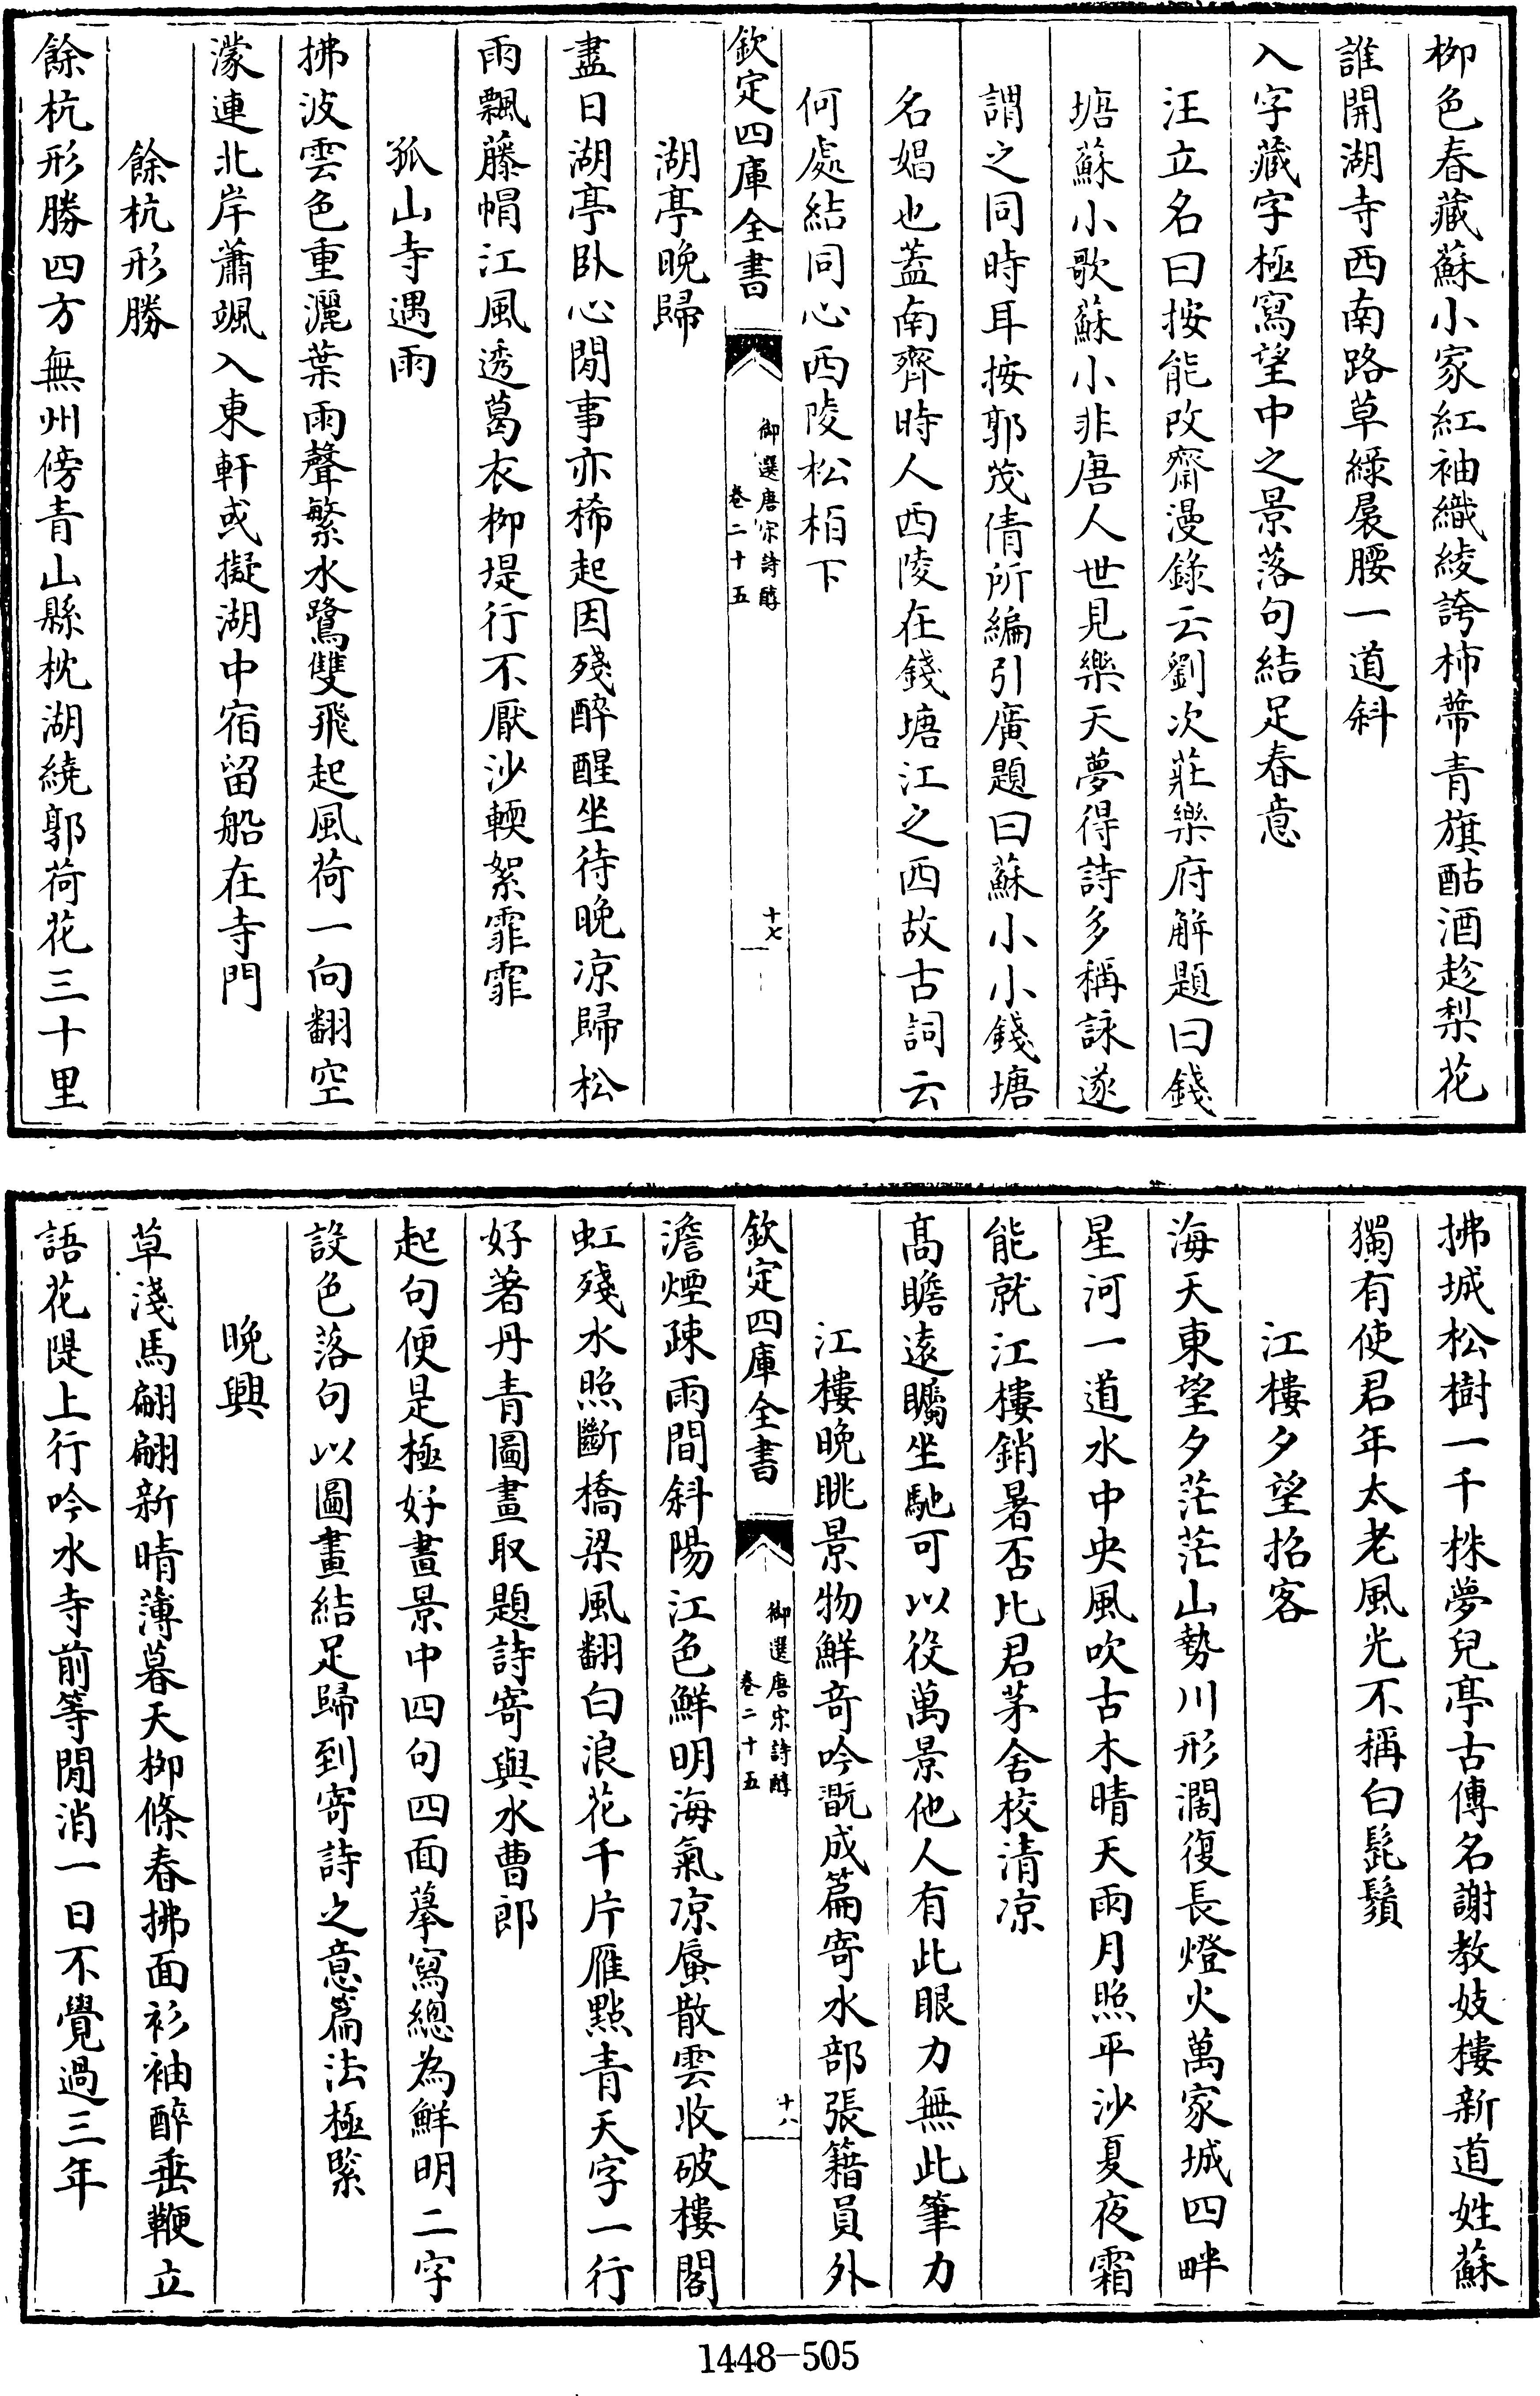 柳色春藏蘇小家紅袖織綾誇柿蔕青旗酤酒趁梨花
誰開湖寺西南路草綠裠腰一道斜
入字藏字極寫望中之景落句結足春意
汪立名曰按能改齋漫錄云劉次莊樂府解題曰錢
塘蘇小歌蘇小非唐人世見樂天夢得詩多稱詠遂
謂之同時耳按郭茂倩所編引廣題曰蘇小小錢塘
名娼也蓋南齊時人西陵在錢塘江之西故古詞云
何處結同心西陵松栢下
欽定四庫全書
御選唐宋詩醇
卷二十五
十七
湖亭晚歸
盡日湖亭臥心閒事亦稀起因殘醉醒坐待晚凉歸松
雨飄藤帽江風透葛衣柳堤行不厭沙輭絮霏霏
孤山寺遇雨
拂波雲色重灑葉雨聲繁水鷺雙飛起風荷一向翻空
濛連北岸蕭颯入東軒或擬湖中宿留船在寺門
餘杭形勝
餘杭形勝四方無州傍青山縣枕湖繞郭荷花三十里
拂城松樹一千株夢兒亭古傳名謝教妓樓新道姓蘇
獨有使君年太老風光不稱白髭鬚
江樓夕望招客
海天東望夕茫茫山勢川形濶復長燈火萬家城四畔
星河一道水中央風吹古木晴天雨月照平沙夏夜霜
能就江樓銷暑否比君茅舍校清凉
髙瞻遠矚坐馳可以役萬景他人有此眼力無此筆力
江樓晚眺景物鮮竒吟翫成篇寄水部張籍員外
欽定四庫全書
御選唐宋詩醇
卷二十五
十八
澹煙疎雨間斜陽江色鮮明海氣凉蜃散雲收破樓閣
虹殘水照斷橋梁風翻白浪花千片雁點青天字一行
好著丹青圖畫取題詩寄與水曹郎
起句便是極好畫景中四句四面摹寫總為鮮明二字
設色落句以圖畫結足歸到寄詩之意篇法極緊
晚興
草淺馬翩翩新晴薄暮天柳條春拂面衫袖醉垂鞭立
語花隄上行吟水寺前等閒消一日不覺過三年
1448-505